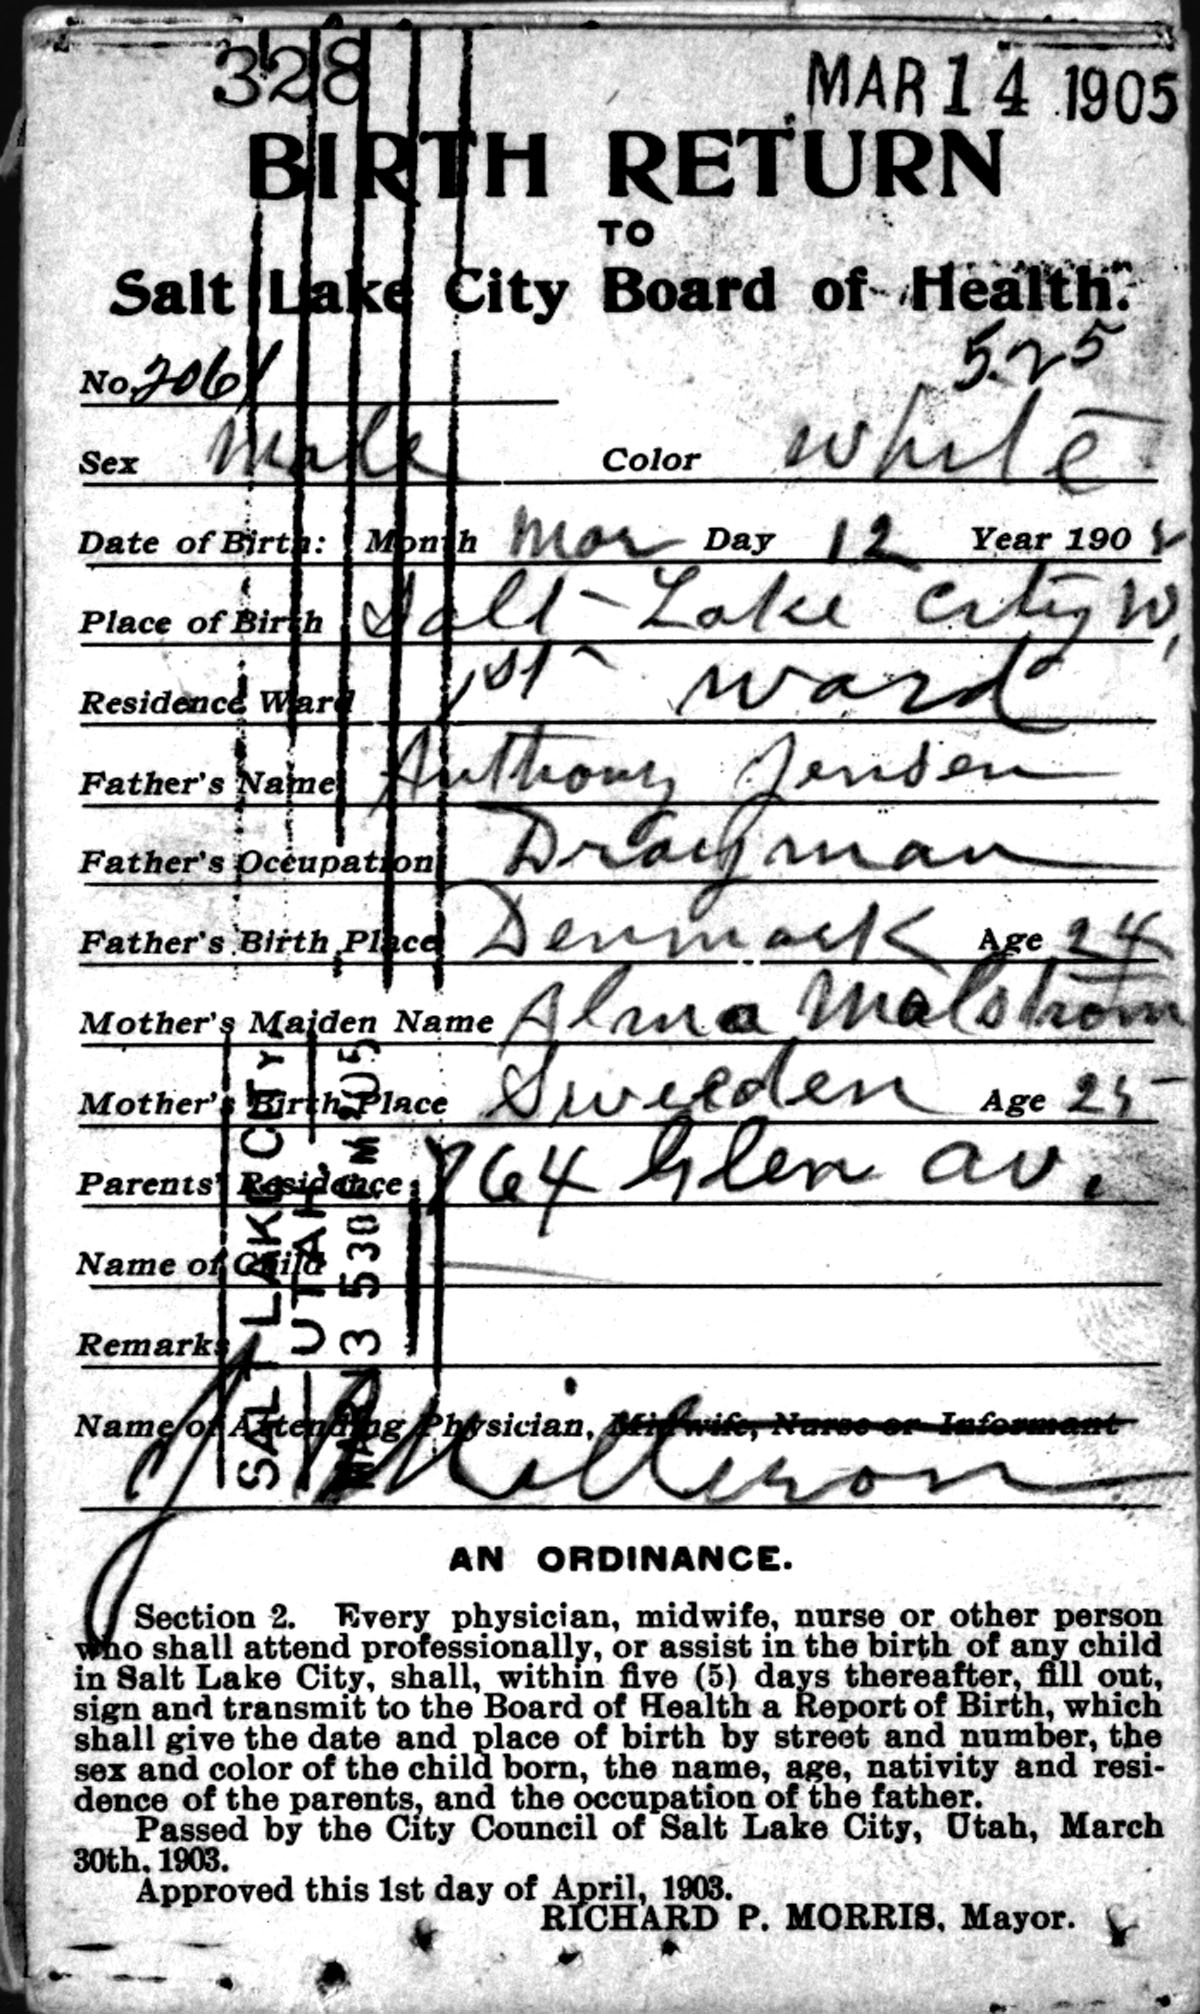 328
MAR 14 1905
BIRTH RETURN
TO
Salt Lake City Board of Health.
525
No. 2061
Sex Male Color White
Date of Birth: Month Mar Day 12 Year 190
Place of Birth Salt Lake City
Residence Ward 1st Ward
Father's Name Anthony Jensen
Father's Occupation Drayman
Father's Birth Place Denmark Age 24
Mother's Maiden Name Alma Malstrom
Mother's Birth Place Sweeden Age 25
Parents' Residence 764 Glen av.
Name of Child
Remarks
Name of Attending Physician, Midwife, Nurse or Informant
Milleson
SALT LAKE CITY
UTAH.
MAR 13 530 PM '05
AN ORDINANCE.
Section 2. Every physician, midwife, nurse or other person
who shall attend professionally, or assist in the birth of any child
in Salt Lake City, shall, within five (5) days thereafter, fill out,
sign and transmit to the Board of Health a Report of Birth, which
shall give the date and place of birth by street and number, the
sex and color of the child born, the name, age, nativity and resi-
dence of the parents, and the occupation of the father.
Passed by the City Council of Salt Lake City, Utah, March
30th, 1903.
Approved this 1st day of April, 1903.
RICHARD P. MORRIS, Mayor.